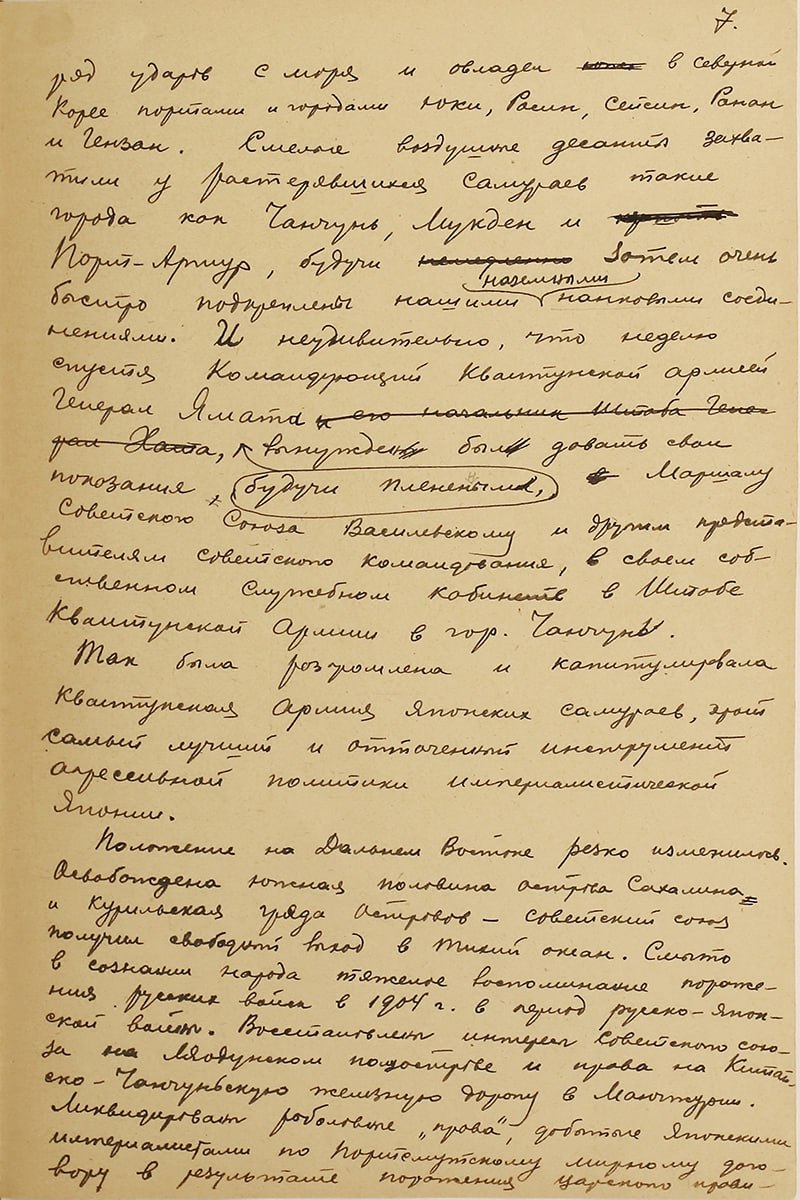 7.
ряд ударов с моря и овладел в северной
Корее портами и городами Юки, Расин, Сейсин, Ранан
и Гензан. Смелые воздушные десанты захва-
тили у растерявшихся самураев такие
города как Чанчунь, Мукден и крепость
Порт-Артур, будучи немедленно затем очень
наземными
быстро подкреплены нашими танковыми соеди-
нениями. И неудивительно, что неделю
спустя Командующий Квантунской армией
Генерал Ямада и его начальник Штаба Гене-
рал Хата, вынужден был давать свои
показания, будучи плененным, Маршалу
Советского Союза Василевскому и другим предста-
вителям советского командования, в своем соб-
ственном служебном кабинете в Штабе
Квантунской Армии в гор. Чанчунь.
Так была разгромлена и капитулировала
Квантунская Армия Японских самураев, этот
самый лучший и отточенный инструмент
агрессивной политики империалистической
Японии.
Положение на Дальнем Востоке резко изменилось.
Освобождена южная половина острова Сахалина
и Курильская гряда островов – советский союз
получил свободный выход в Тихий океан. Смыто
в сознании народа тяжелое воспоминание пораже-
ния русских войск в 1904 г. в период русско-япон-
ской войны. Восстановлены интересы Советского сою-
за на Ляодунском полуострове и права на Китай-
ско-Чанчуньскую железную дорогу в Манчжурии.
Ликвидированы грабовые „права", добытые Японскими
империалистами по Портсмутскому мирному дого-
вору в результате поражения царского прави-